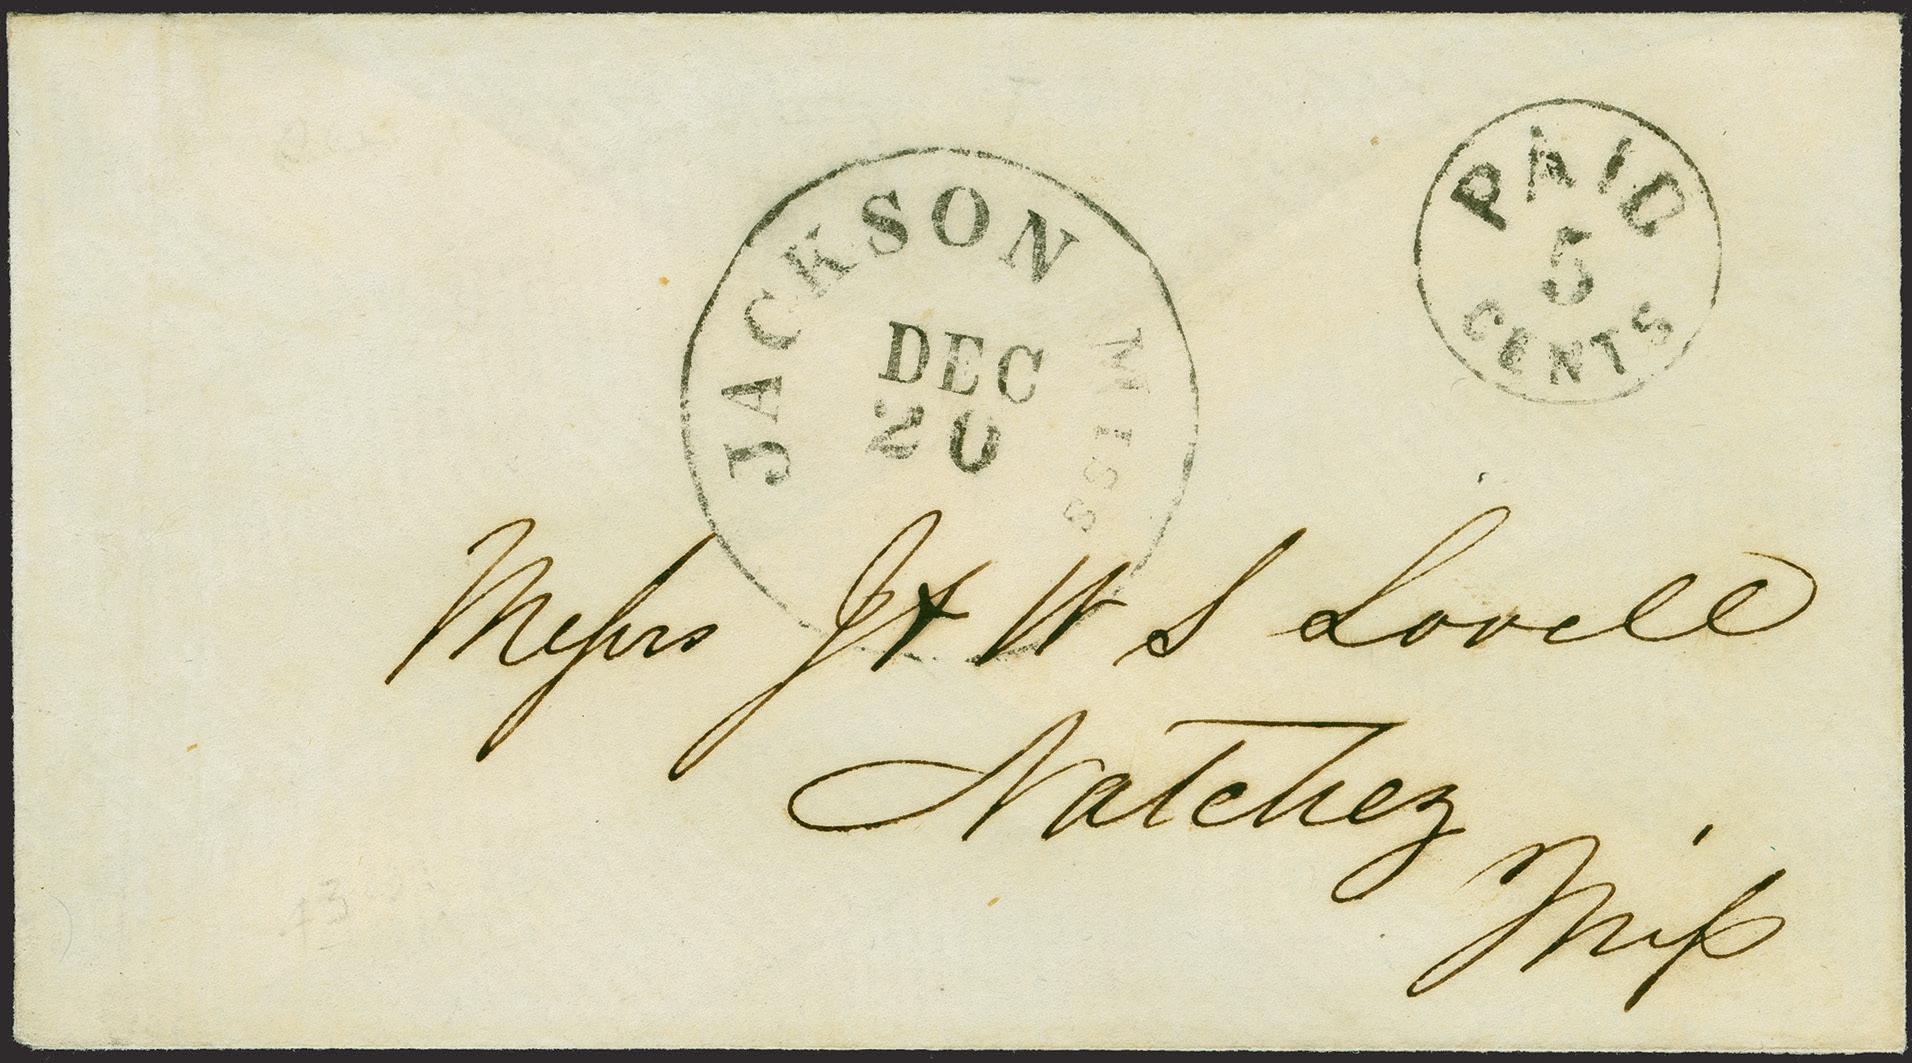 JACKSON
MISS
DEC
20
PAID
5
CENTS
Messrs J & W S Lovell
Natchez
Miss